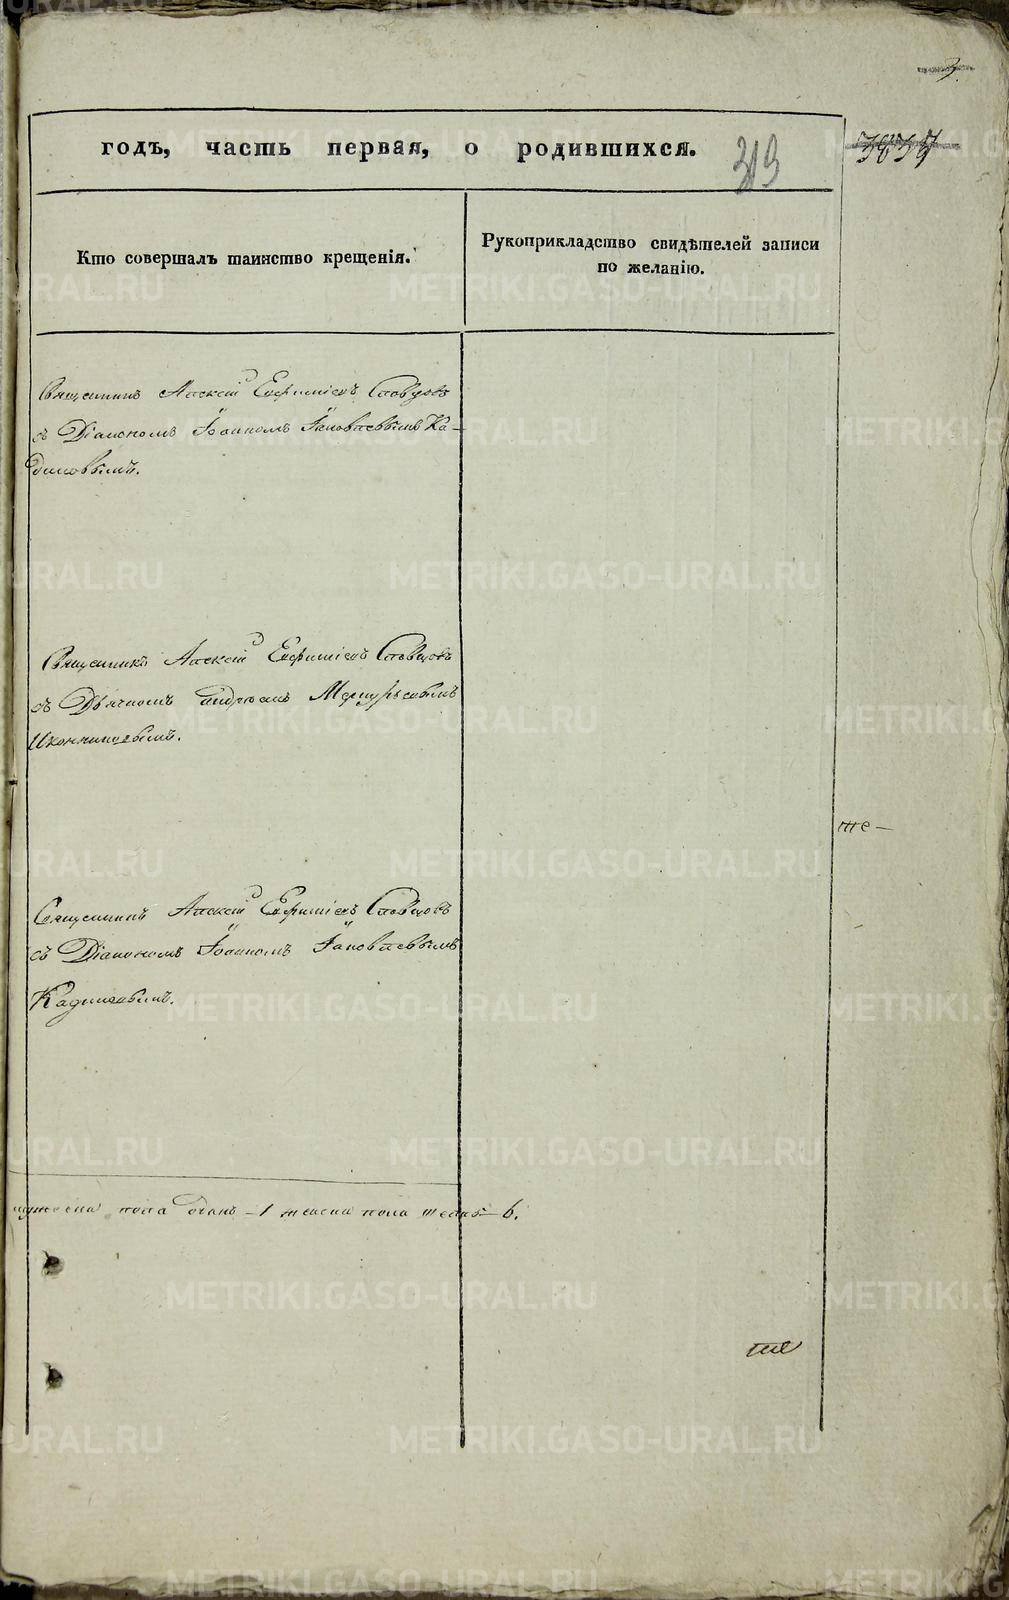 3.
годъ, часть первая, о родившихся.
313
Кто совершалъ таинство крещенія.
Рукоприкладство свидѣтелей записи
по желанію.
Священникъ Алексій Евфиміевъ Словцовъ
съ Діакономъ Іоанномъ Іаковлевымъ Ка-
диковымъ.
Священникъ Алексій Евфиміевъ Словцовъ
съ Дьячкомъ Андреемъ Меркурьевымъ
Иконниковымъ.
же-
Священникъ Алексій Евфиміевъ Словцовъ
съ Діакономъ Іоанномъ Іаковлевымъ
Кадиковымъ.
мужеска пола одинъ - 1 женска пола шесть - 6.
METRIKI.GASO-URAL.RU